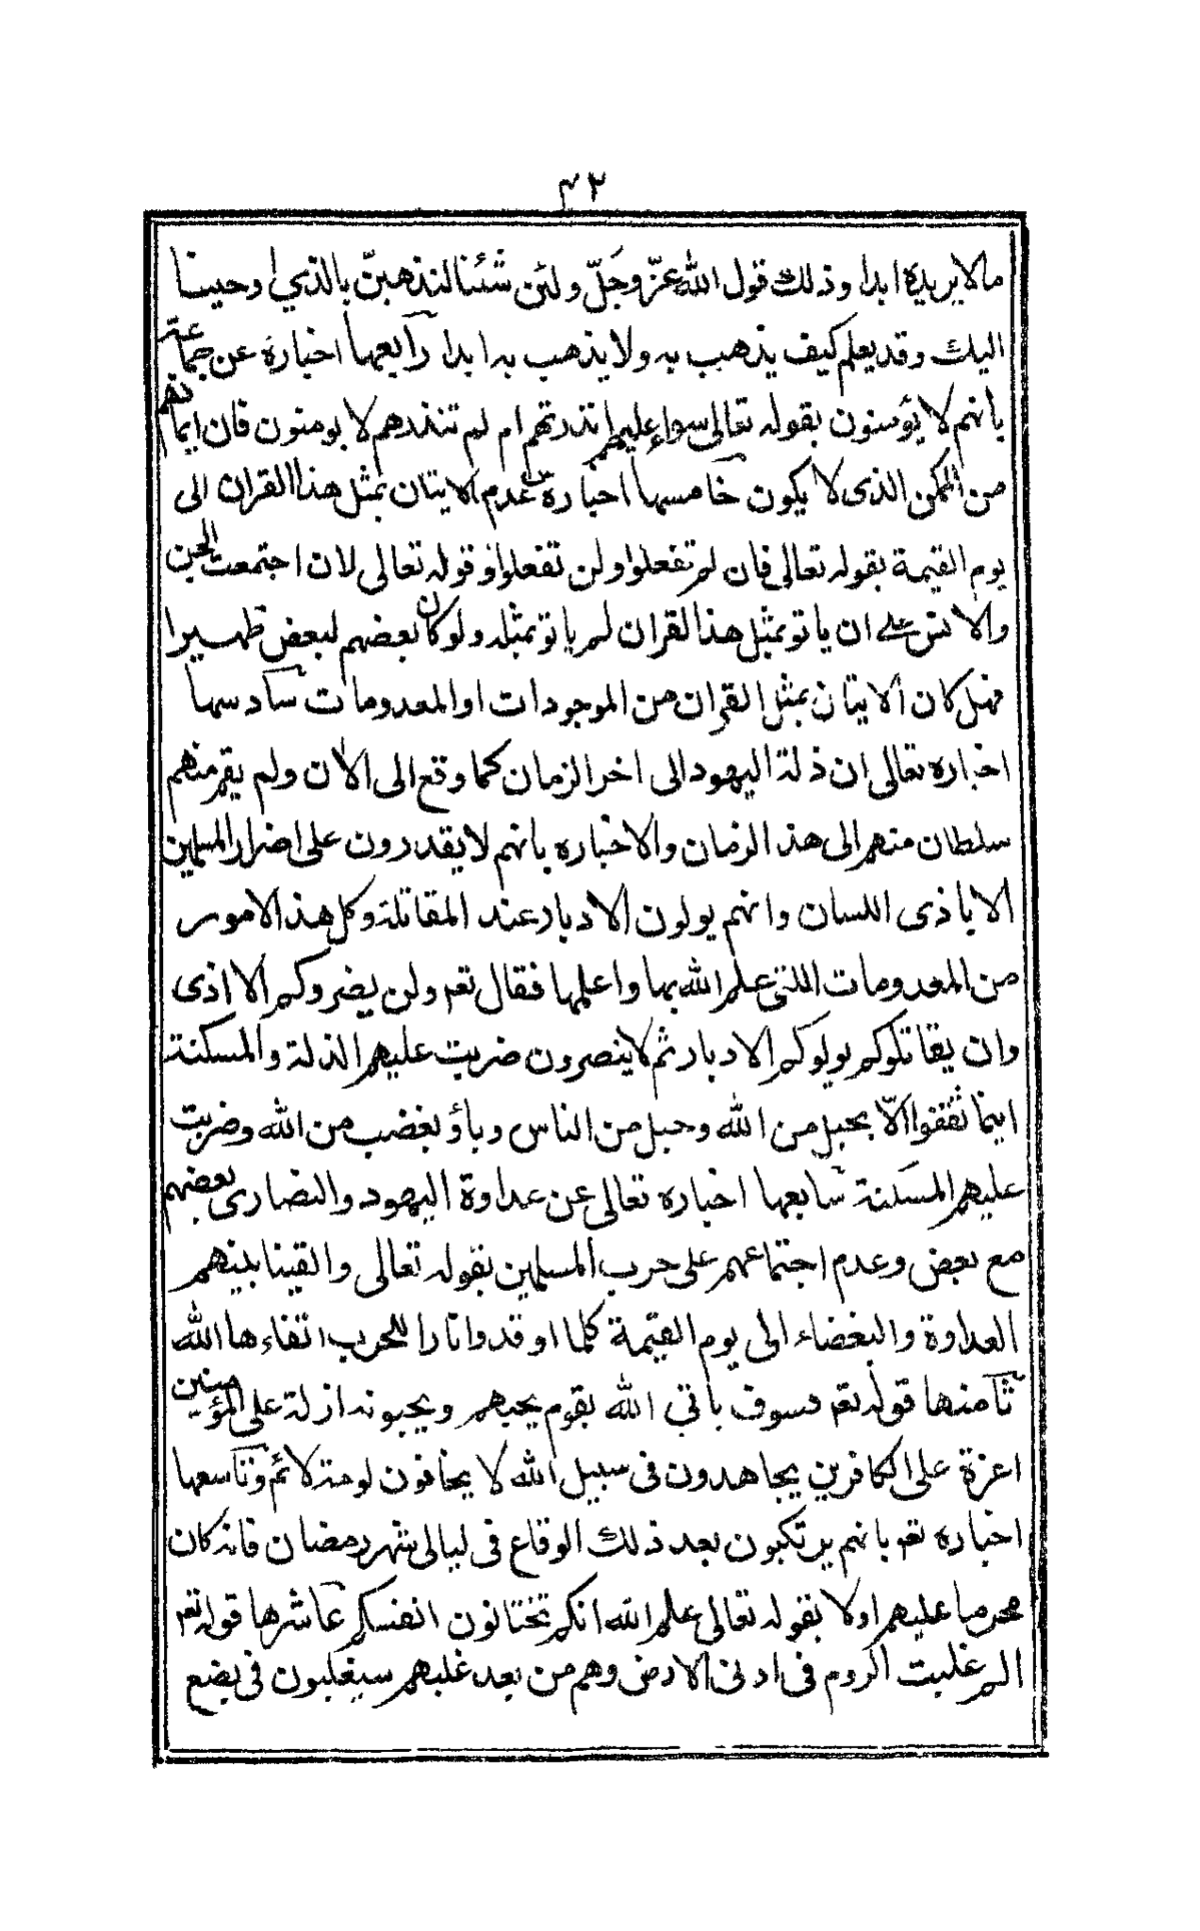 ٤٢
مالايريده ابدا وذلك قول الله عزّ وجَلّ ولئن شئنا لنذهبنّ بالذي اوحينا
اليك وقد يعلم كيف يذهب به ولا يذهب به ابدا رابعها اخباره عن جماعة
بانهم لا يؤمنون بقوله تعالى سواء عليهم انذرتهم ام لم تنذرهم لا يومنون فان ايمانهم
من الممكن الذى لا يكون خامسها اخباره عن عدم الايتان بمثل هذا القران الى
يوم القيمة بقوله تعالى فان لم تفعلوا ولن تفعلوا وقوله تعالى لان اجتمعت الجن
والانس على ان ياتو بمثل هذا القران لم ياتو بمثله ولو كان بعضهم لبعض ظهيرا
فهل كان الايتان بمثل القران من الموجودات او المعدومات سادسها
اخباره تعالى ان ذلة اليهود الى اخر الزمان كما وقع الى الان ولم يقم منهم
سلطان منهم الى هذ الزمان والاخباره بانهم لا يقدرون على اضرار المسلمين
الا باذى اللسان وانهم يولون الادبار عند المقاتلة وكل هذ الامور
من المعدومات اللتى علم الله بها واعلمها فقال تعم ولن يضروكم الا اذى
وان يقاتلوكم يولوكم الادبار ثم لا ينصرون ضربت عليهم الذلة والمسكنة
اينما ثقفوا الّا بحبل من الله وحبل من الناس وباؤ بغضب من الله وضربت
عليهم المسكنة سابعها اخباره تعالى عن عداوة اليهود والنصارى بعضهم
مع بعض وعدم اجتماعهم على حرب المسلمين بقوله تعالى والقينا بينهم
العداوة والبغضاء الى يوم القيمة كلما اوقدوا نارا للحرب اتفاءها الله
ثامنها قوله تعم فسوف ياتي الله بقوم يحبهم ويحبونه ازلة على المؤمنين
اعزة على الكافرين يجاهدون فى سبيل الله لا يخافون لومة لائم وتاسعها
اخباره تعم بانهم يرتكبون بعد ذلك الوقاع فى ليالى شهر رمضان فانه كان
محرما عليهم اولا بقوله تعالى علم الله انكم تختانون انفسكم عاشرها قوله تعم
الم غلبت الروم فى ادنى الارض وهم من بعد غلبهم سيغلبون فى بضع